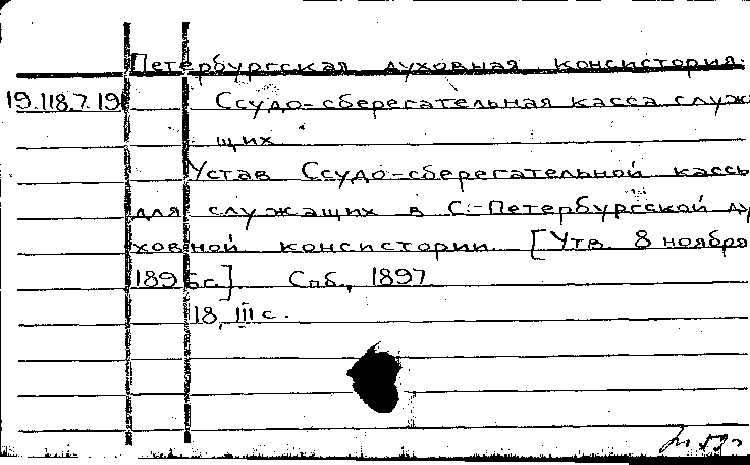 Петербургская духовная консистория.
19.118.7.19 Ссудо-сберегательная касса служа-
щих
Устав Ссудо-сберегательной кассы
для служащих в С.-Петербургской ду-
ховной консистории. [Утв. 8 ноября
1896 г.]. Спб., 1897.
18, III с.